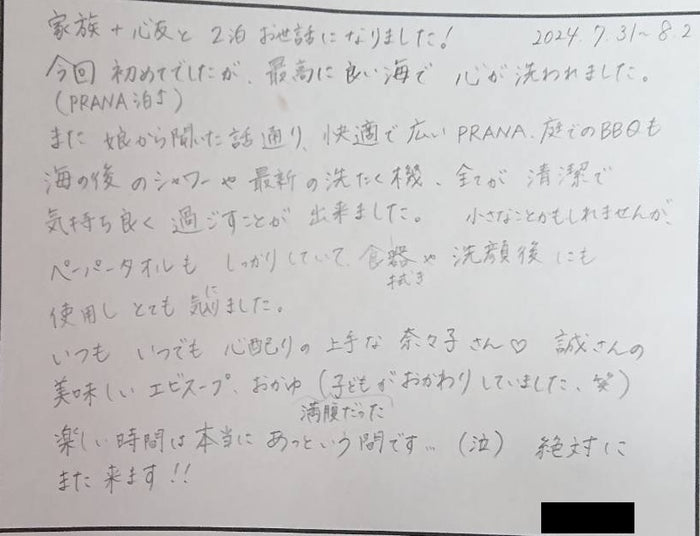 家族+心友と 2泊 お世話になりました! 2024.7.31~8.2
今回 初めてでしたが、最高に良い海で 心が洗われました。
(PRANA泊♪)
また 娘から聞いた話通り、快適で広い PRANA、庭でのBBQも
海の後のシャワーや最新の洗たく機、全てが清潔で
気持ち良く過ごすことが出来ました。 小さなことかもしれませんが、
ペーパータオルもしっかりしていて、食器や洗顔後にも
拭き
使用しとても気に入りました。
いつも いつでも 心配りの上手な 奈々子さん♡ 誠さんの
美味しいエビスープ、おかゆ (子どもがおかわりしていました、笑)
満腹だった
楽しい時間は本当に あっという間です… (泣) 絶対に
また来ます!!